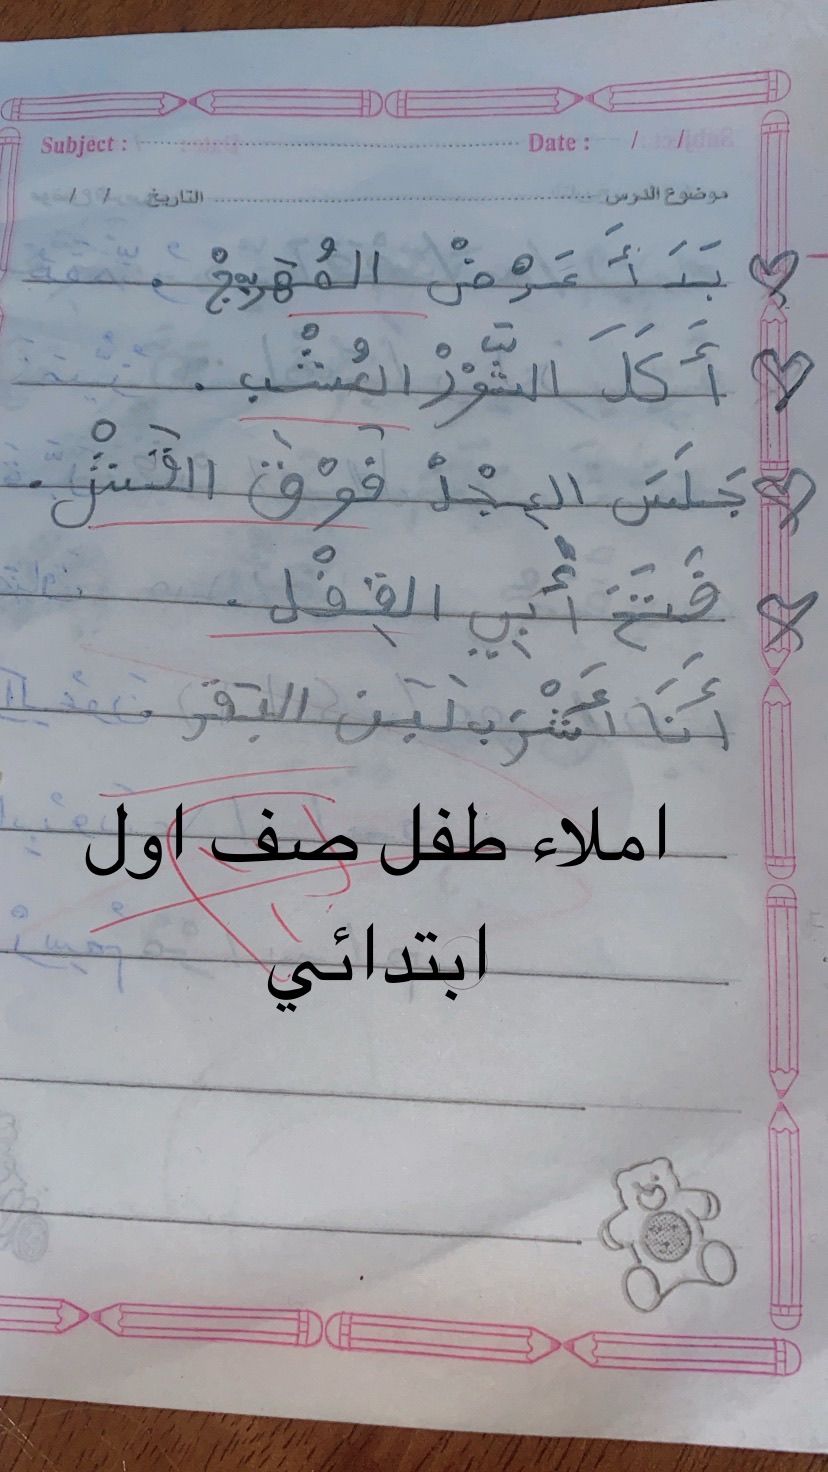 Subject : Date : / /
موضوع الدرس التاريخ / /
بَدَ أَ عَرْضْ المُهَرِّجْ .
أَكَلَ الثَّوْرْ العُشْب .
جَلَسَ العِجْلْ فَوْقَ القَشْ .
فَتَحَ أَبِي القِفْل .
أَنَا أَشْرَب لَبَن البَقَر .
املاء طفل صف اول
ابتدائي